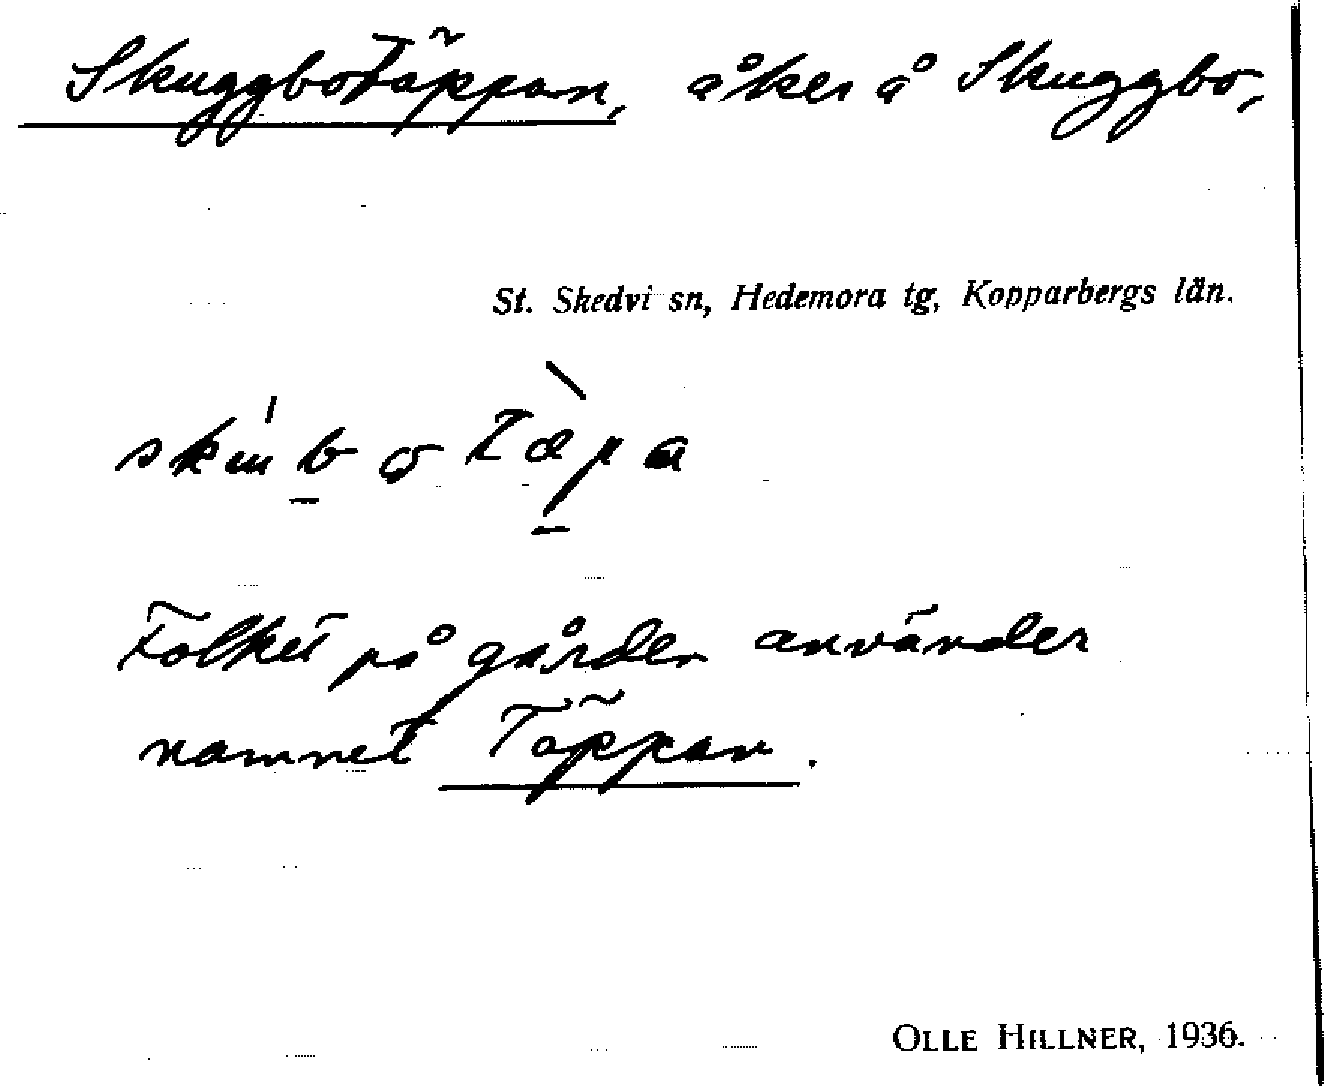 Skuggbotäppan, åker å Skuggbo,
St. Skedvi sn, Hedemora tg, Kopparbergs län.
Folket på gården använder
namnet Täppan.
OLLE HILLNER, 1936.